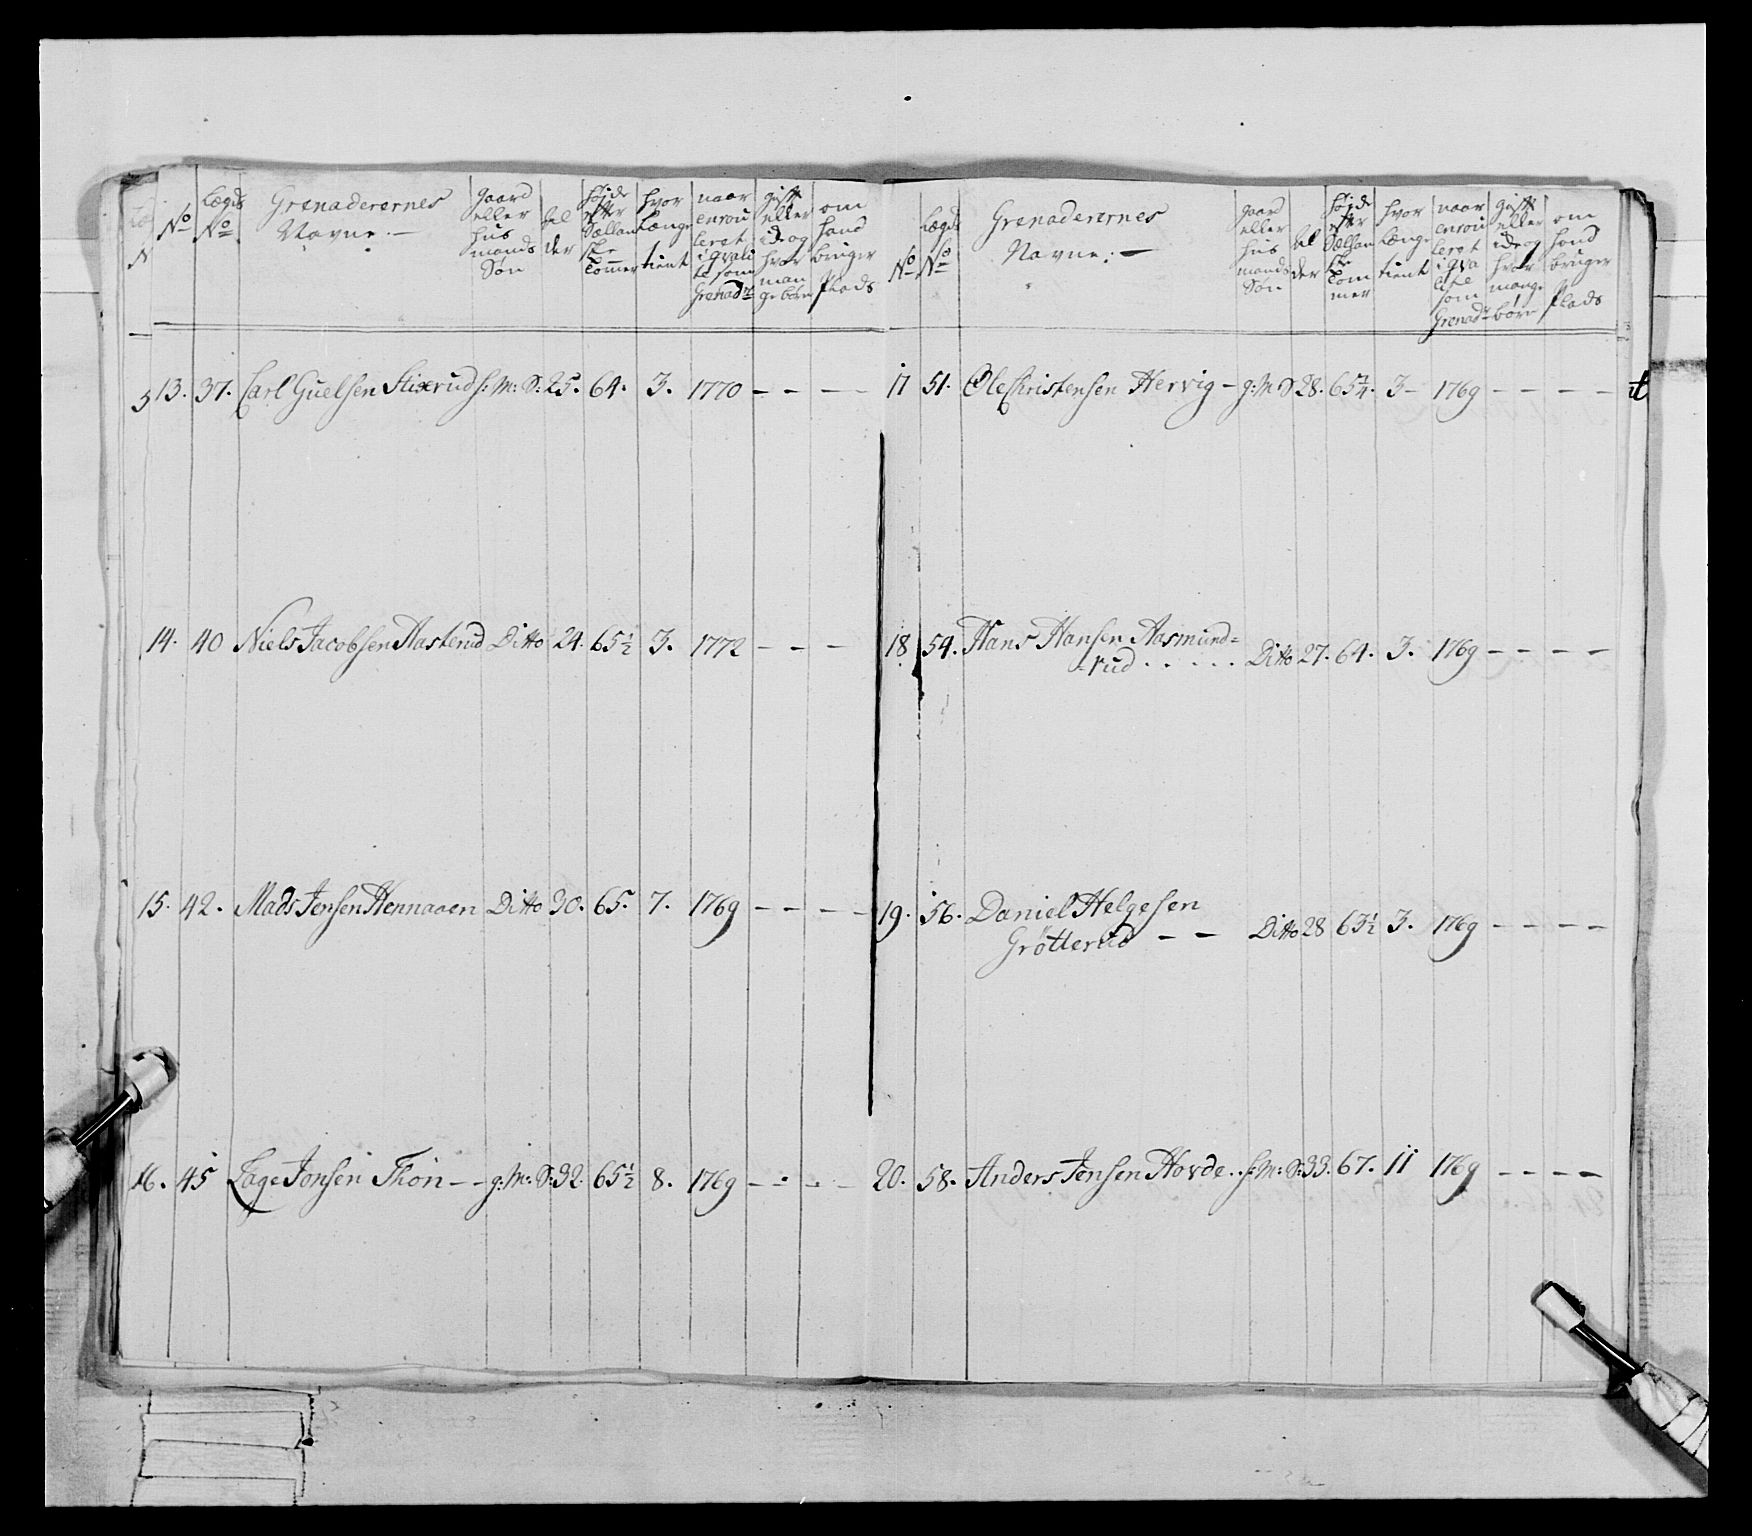 No
Lægds No
Grenaderernes Navne. —
gaard eller huus mands Søn
al der
højde efter Sællan ske Tommer
hvor længe tient
naar enrou leret i qvali te som Grenadr
gift eller ide og hvor man ge børn
om hand bruger Plads
13. 37. Carl Guelsen Stixrud h: M: S: 25. 64. 3. 1770 – – –
14. 40 Niels Jacobsen Aasterud Ditto 24. 65½ 3. 1772 – – –
15. 42. Mads Jensen Hennaaen Ditto 30. 65. 7. 1769 – – – –
16. 45 Lage Jonsen Thon – – g: M: S: 32. 65½ 8. 1769 – – – –
No
Lægds No
Grenaderernes Navne: —
gaard eller huus mands Søn
al der
højde efter Sællan ske Tom mer
hvor længe tient
naar enrou leret i qva lite som Grenadr
gift eller ide og hvor mange børn
om hand bruger Plads
17 51. Ole Christensen Hervig – g: M S 28. 65¼. 3 – 1769 – – – –
18 54. Hans Hansen Aasmund=
=rud . . . . . Ditto 27. 64. 3. 1769 – – – –
19. 56. Daniel Helgesen
Grötterud – – Ditto 28 63½ 3. 1769 – – – –
20. 58. Anders Jensen Hovde . h: M: S: 33. 67. 11 1769 – – – –